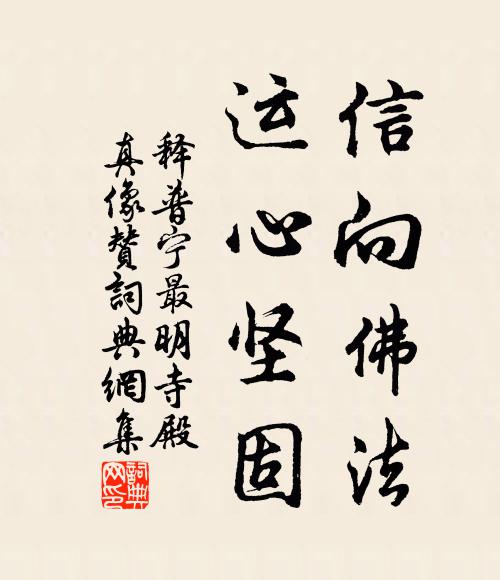 信向佛法
运心坚固
释普宁最明寺殿
真像赞词典網集
詞典网印